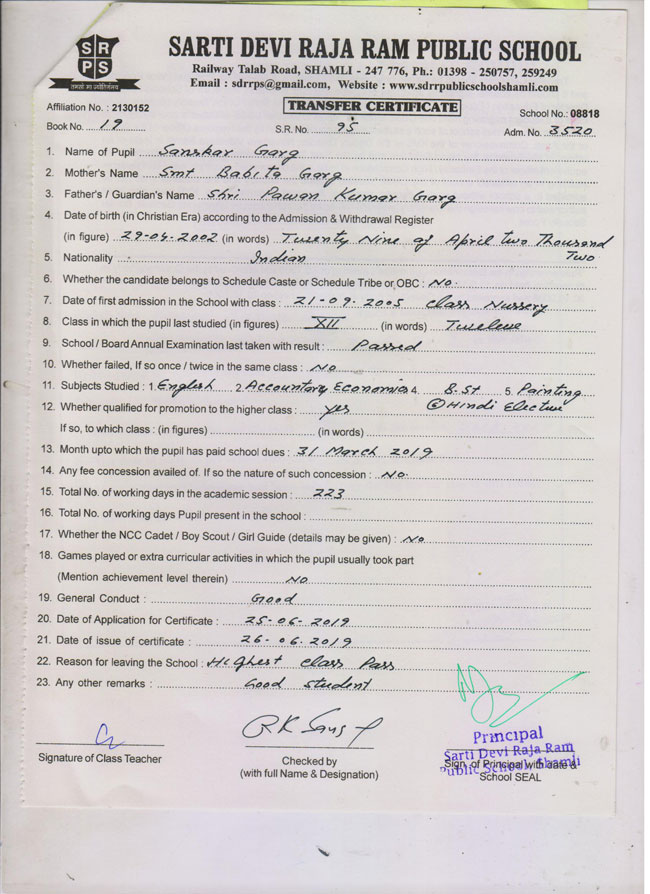 SRPS
तमसो मा ज्योतिर्गमय
SARTI DEVI RAJA RAM PUBLIC SCHOOL
Railway Talab Road, SHAMLI - 247 776, Ph.: 01398 - 250757, 259249
Email : sdrrps@gmail.com, Website : www.sdrrpublicschoolshamli.com
Affiliation No. : 2130152 TRANSFER CERTIFICATE School No.: 08818
Book No. 19 S.R. No. 95 Adm. No. 3520
1. Name of Pupil Sanskar Garg
2. Mother's Name Smt Babita Garg
3. Father's / Guardian's Name Shri Pawan Kumar Garg
4. Date of birth (in Christian Era) according to the Admission & Withdrawal Register
(in figure) 29-04-2002 (in words) Twenty Nine of April two Thousand
5. Nationality Indian Two
6. Whether the candidate belongs to Schedule Caste or Schedule Tribe or OBC : No.
7. Date of first admission in the School with class : 21-09-2005 class Nussery
8. Class in which the pupil last studied (in figures) XII (in words) Twelve
9. School / Board Annual Examination last taken with result : Passed
10. Whether failed, If so once / twice in the same class : No
11. Subjects Studied : 1. English 2. Accountancy Economics 4. B.St 5. Painting
12. Whether qualified for promotion to the higher class : yes ⑥ Hindi Elective
If so, to which class : (in figures) (in words)
13. Month upto which the pupil has paid school dues : 31 March 2019
14. Any fee concession availed of. If so the nature of such concession : No.
15. Total No. of working days in the academic session : 223
16. Total No. of working days Pupil present in the school :
17. Whether the NCC Cadet / Boy Scout / Girl Guide (details may be given) : No
18. Games played or extra curricular activities in which the pupil usually took part
(Mention achievement level therein) NO
19. General Conduct : Good
20. Date of Application for Certificate : 25-06-2019
21. Date of issue of certificate : 26-06-2019
22. Reason for leaving the School : Highest class Pass
23. Any other remarks : Good student
Principal
Sarti Devi Raja Ram
Public School, Shamli
Signature of Class Teacher Checked by Sign. of Principal with date &
(with full Name & Designation) School SEAL